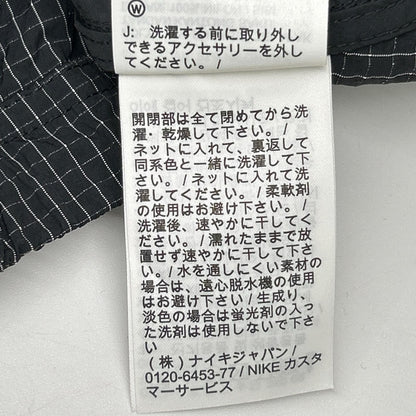 W
J: 洗濯する前に取り外し
できるアクセサリーを外
してください。/
開閉部は全て閉めてから洗
濯・乾燥して下さい。/
ネットに入れて、裏返して
同系色と一緒に洗濯して下
さい。/ネットに入れて洗
濯してください。/柔軟剤
の使用はお避け下さい。/
洗濯後、速やかに干して下
さい。/濡れたままで放
置せず速やかに干して下さ
い。/水を通しにくい素材の
場合は、遠心脱水機の使用
はお避け下さい/生成り、
淡色の場合は蛍光剤の入っ
た洗剤は使用しないで下さ
い
(株)ナイキジャパン/
0120-6453-77/NIKE カスタ
マーサービス